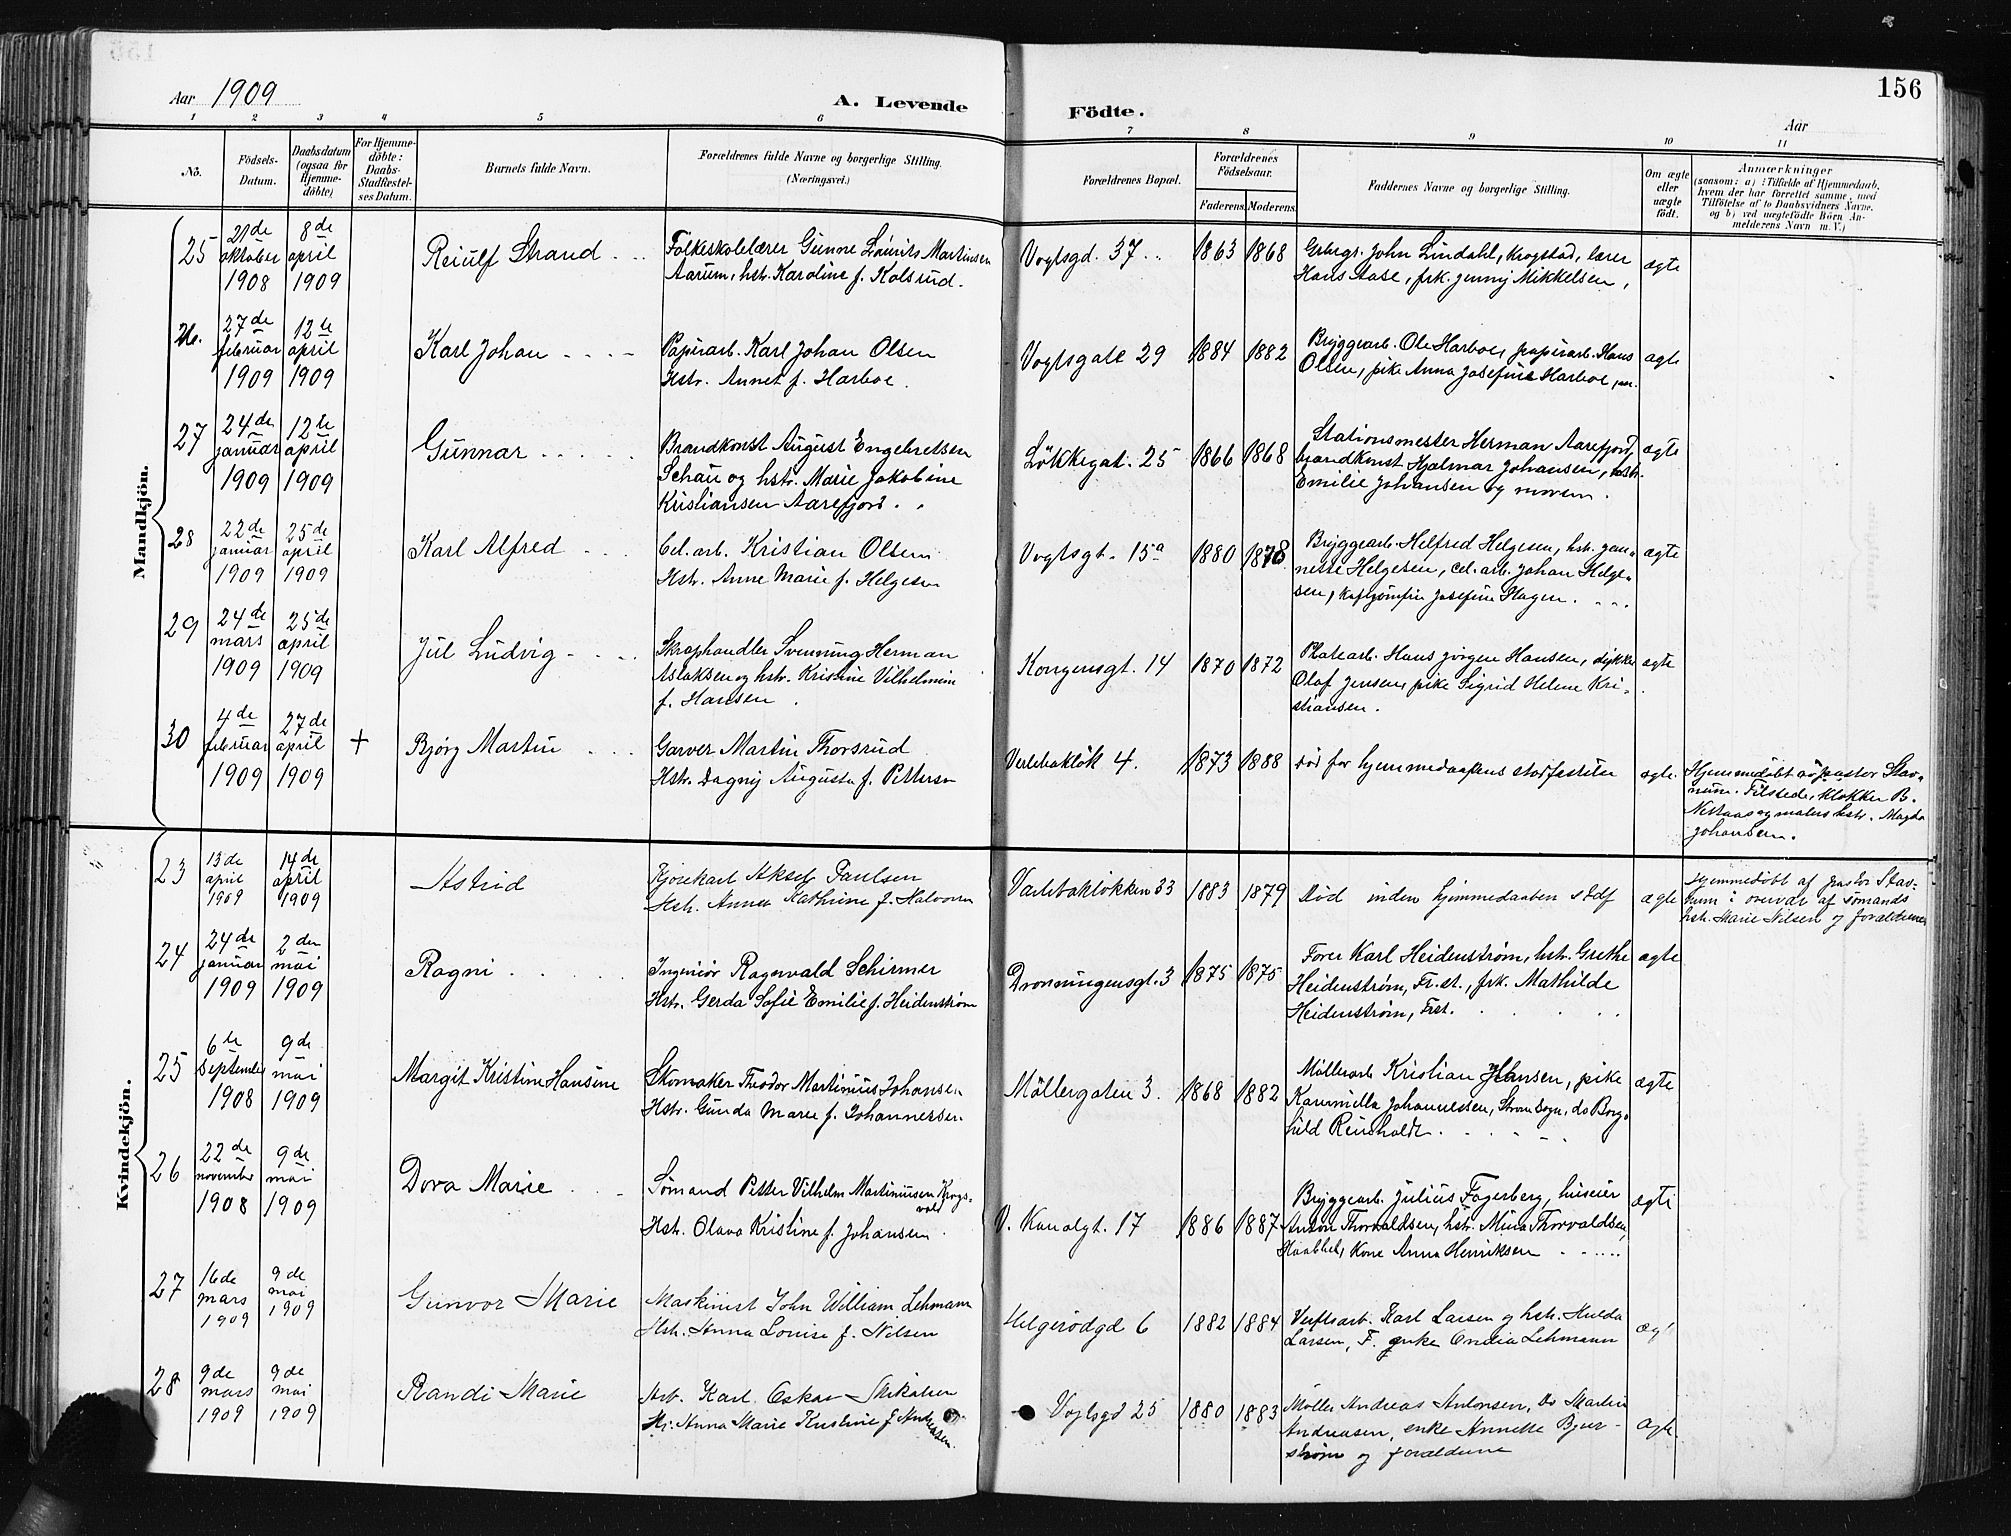 156
Aar 1909
A. Levende Födte.
Aar
1 2 3 4 5 6 7 8 9 10 11
No.
Födsels-
Datum.
Daabsdatum
(ogsaa for
Hjemme-
döbte)
For Hjemme-
döbte:
Daabs-
Stadfæstel-
ses Datum.
Barnets fulde Navn.
Forældrenes fulde Navne og borgerlige Stilling.
(Næringsvei.)
Forældrenes Bopæl.
Forældrenes
Födselsaar.
Faderens. Moderens.
Faddernes Navne og borgerlige Stilling.
Om ægte
eller
uægte
födt.
Anmærkninger
(saasom: a) i Tilfælde af Hjemmedaab,
hvem der har forrettet samme, med
Tilföielse af to Daabsvidners Navne,
og b) ved uægtefödte Börn An-
melderens Navn m. V.)
Mandkjön.
25
21de
oktober
1908
8de
april
1909
Reiulf Strand
Folkeskolelærer Gunne Lauritz Martinsen
Aarum, hstr. Karoline f. Kolsrud.
Vogtsgd. 37
1863 1868
Grbrgr. John Lindahl, Krogstad, lærer
Hans Aase, frk. Jenny Mikkelsen,
ægte
26.
27de
februar
1909
12te
april
1909
Karl Johan
Papirarb. Karl Johan Olsen
Hstr. Annet f. Harboe.
Vogtsgate 29
1884 1882
Bryggearb. Ole Harboe, papirarb. Hans
Olsen, pike Anna Josefine Harboe,
ægte
27
24de
januar
1909
12te
april
1909
Gunnar
Brandkonst August Engebretsen
Schau og hstr. Marie Jakobine
Kristiansen Aarefjord.
Løkkegat. 25
1866 1868
Stationsmester Herman Aarefjord,
brandkonst Hjalmar Johansen, hstr.
Emilie Johansen og moren.
ægte
28
22de
januar
1909
25de
april
1909
Karl Alfred
Cel. arb. Kristian Olsen
Hstr. Anne Marie f. Helgesen
Vogtsgt. 15a
1880 1878
Bryggearb. Helfred Helgesen, hstr. Jen-
nette Helgesen, cel. arb. Johan Helge-
sen, Josefine Hagen.
ægte
29
24de
mars
1909
25de
april
1909
Jul Ludvig
Skraphandler Svenning Herman
Aslaksen og hstr. Kristine Vilhelmine
f. Hansen
Kongensgt. 14
1870 1872
Platearb. Hans Jørgen Hansen, dykker
Olaf Jensen, pike Sigrid Helene Kri-
stiansen.
ægte
30
4de
februar
1909
27de
april
1909
+
Bjørg Martin
Garver Martin Thorsrud
Hstr. Dagny Augusta f. Pettersen
Verlebaklök 4.
1873 1888
død før hjemmedaapens stadfæstelse
ægte.
Hjemmedøbt av pastor Stav-
num. Tilstede, klokker B.
Nettaas og malers hstr. Magda
Johansen.
Kvindekjön.
23
13de
april
1909
14de
april
1909
Astrid
Kjørekarl Aksel Paulsen
Hstr. Anna Kathrine f. Halvorsen
Varlebakløkken 33
1883 1879
Død inden hjemmedaaben stdf
ægte
Hjemmedøbt af pastor Stav-
num i overvær af sömands
hstr. Marie Nilsen og forældrene
24
24de
januar
1909
2den
mai
1909
Ragni
Ingeniör Ragnvald Schirmer
Hstr. Gerda Sofie Emilie f. Heidenstrøm
Dronningensgt. 3
1875 1875
Forer Karl Heidenstrøm, hstr. Grethe
Heidenstrøm, Fr.st., frk. Mathilde
Heidenstrøm, Frst.
ægte
25
6te
september
1908
9de
mai
1909
Margit Kristine Hansine
Skomaker Theodor Martinius Johansen
Hstr. Gunda Marie f. Johannessen.
Möllergaten 3.
1868 1882
Möllerarb Kristian Hansen, pike
Kammilla Johannessen, Strømsogn, do Borg-
hild Reinholdt.
ægte
26
22de
november
1908
9de
mai
1909
Dora Marie
Sömand Petter Vilhelm Martinusen Krogs-
vold
Hstr. Olava Kristine f. Johansen.
V. Kanalgt. 17
1886 1887
Bryggearb. Julius Fagerberg, huseier
Anton Thorvaldsen, hstr. Mina Thorvaldsen,
Haabbel, Kone Anna Henriksen
ægte
27
16de
mars
1909
9de
mai
1909
Gunvor Marie
Maskinist John William Lehmann
Hstr. Anna Louise f. Nilsen
Helgerödgd 6
1882 1884
Verftsarb. Karl Larsen og hstr. Hulda
Larsen, F. enke Emilia Lehmann
ægt
28
9de
mars
1909
9de
mai
1909
Randi Marie
Arb. Karl Oskar Mikalsen
Hr. Anna Marie Kristine f. Andreasen.
Vogtsgd 25
1880 1883
Møller Andreas Antonsen, Do Martin
Andreasen, enke Annette Bjer-
strøm og forældrene
ægte